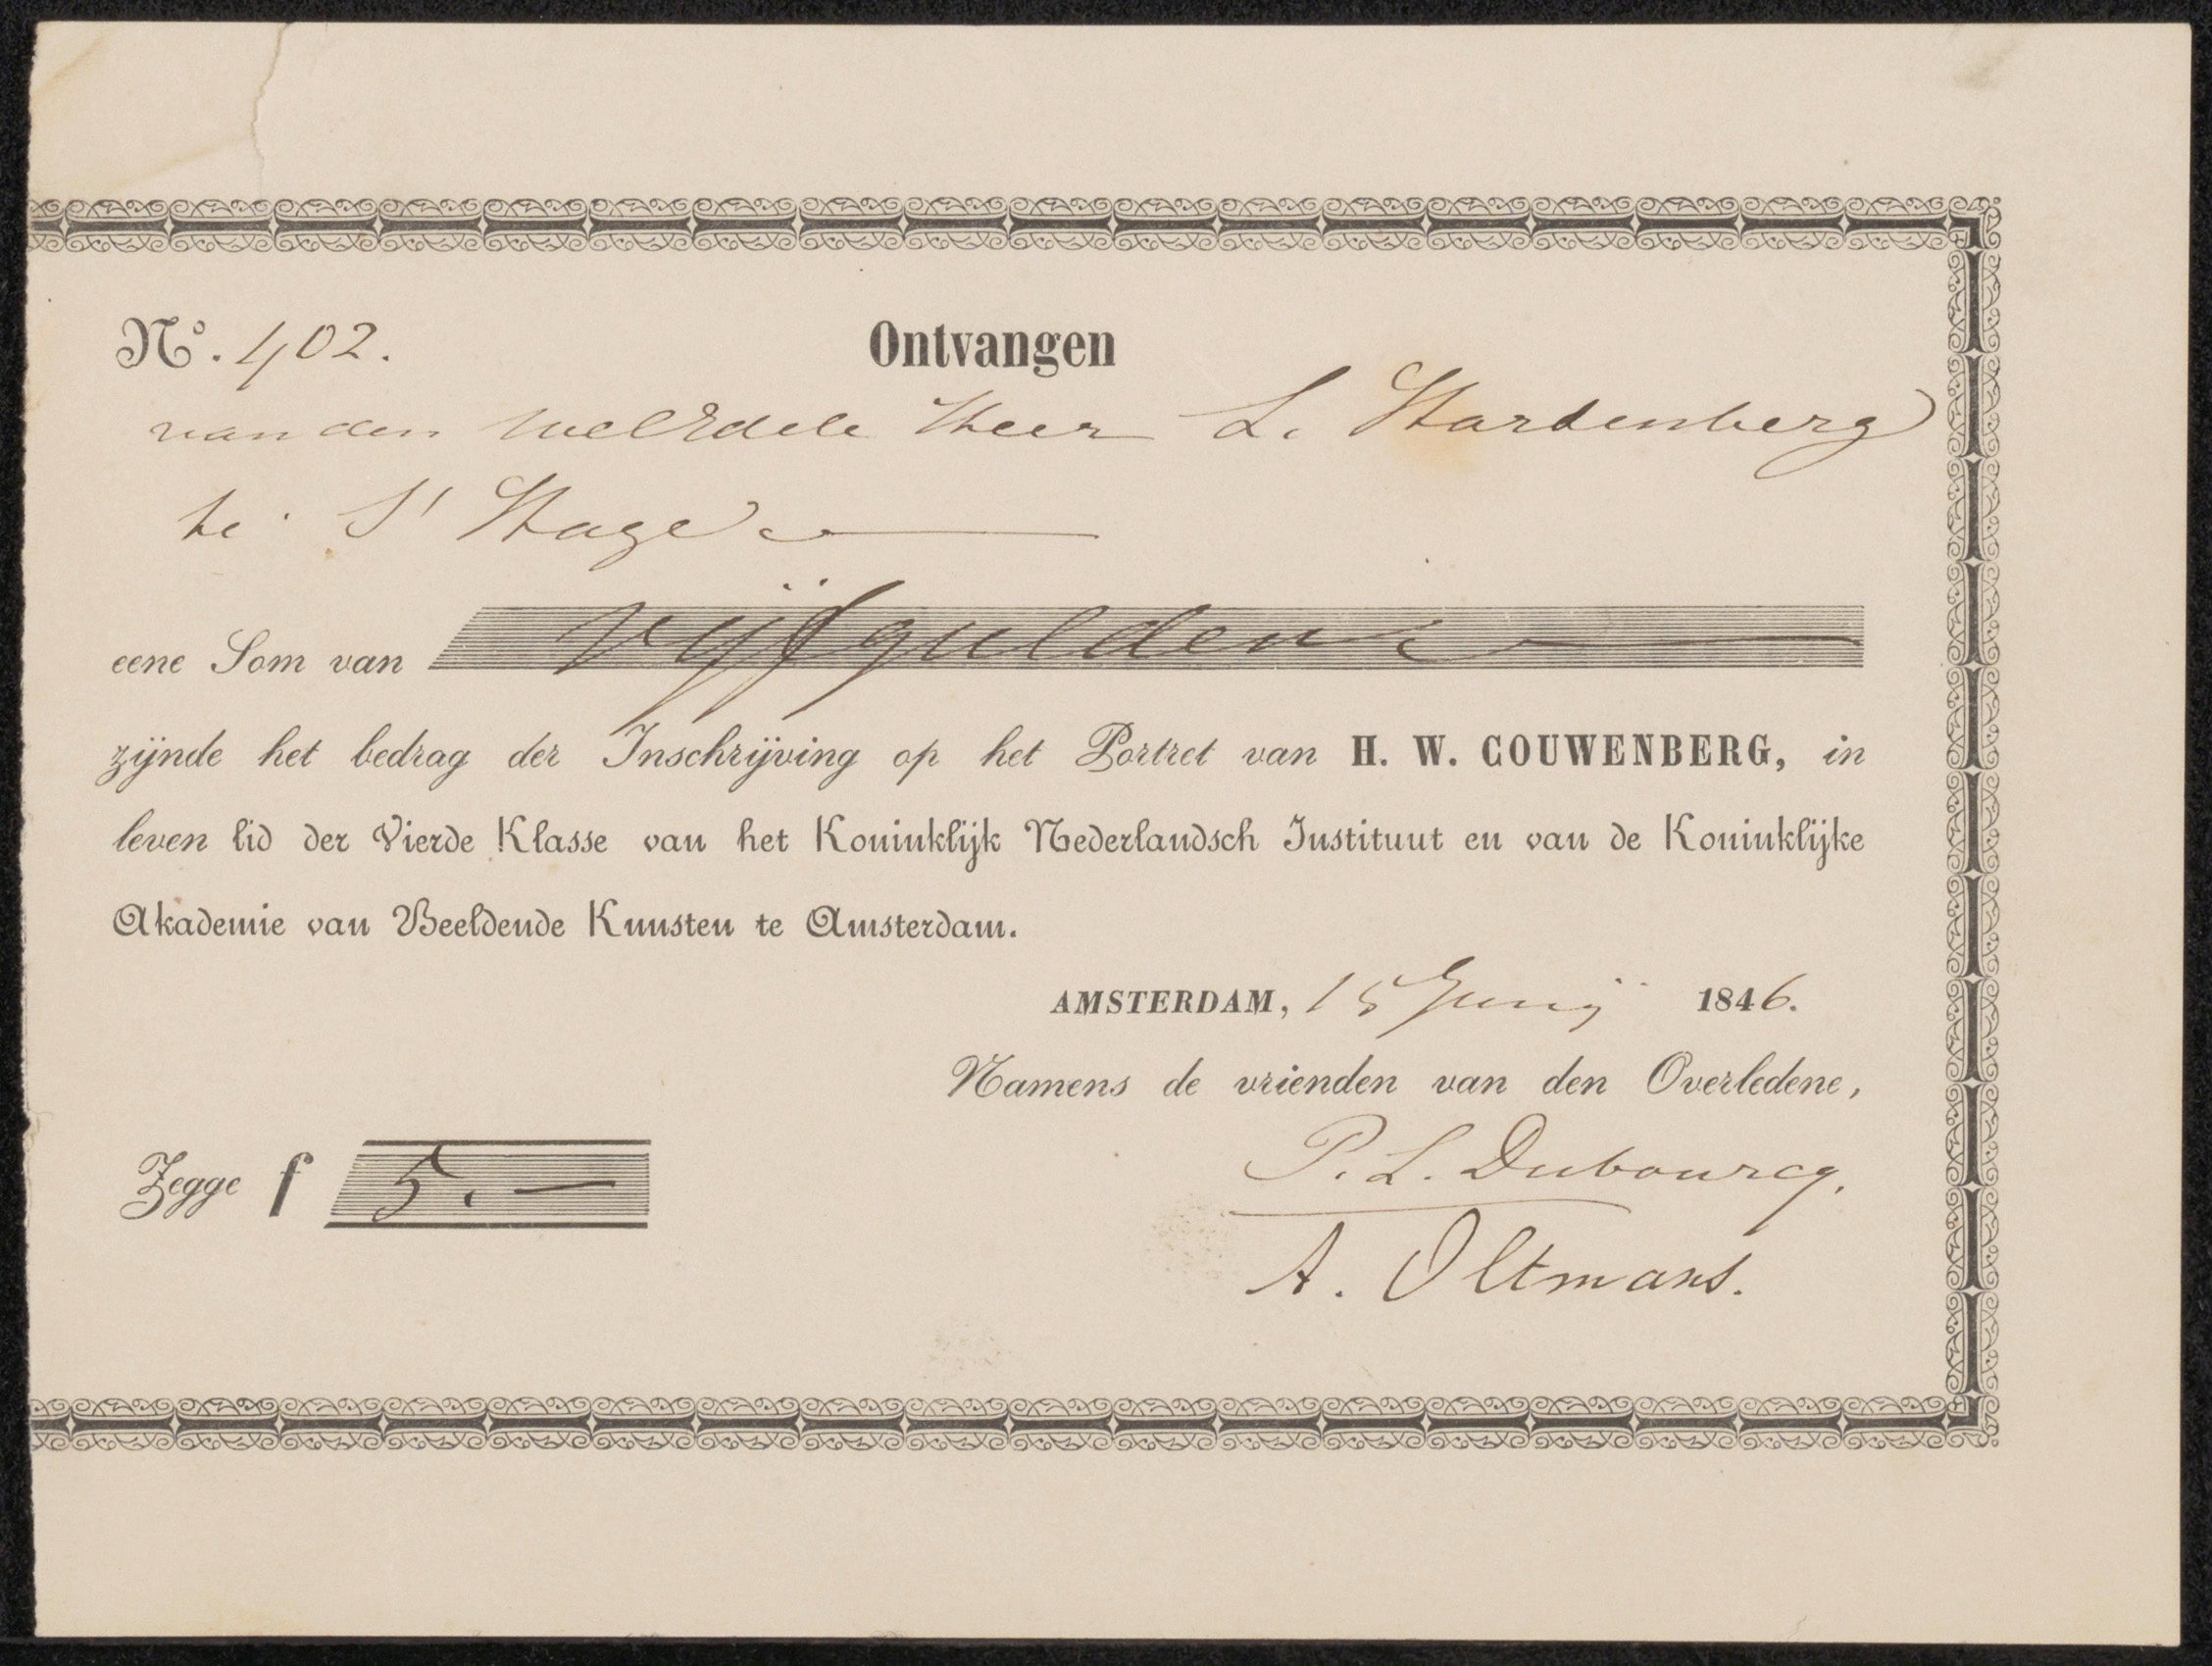 Nº. 402. Ontvangen
van den WelEdele Heer L. Hardenberg
te S' Hage
eene Som van vijfgulden
zijnde het bedrag der Inschrijving op het Portret van H. W. COUWENBERG, in
leven lid der Vierde Klasse van het Koninklijk Nederlandsch Instituut en van de Koninklijke
Akademie van Beeldende Kunsten te Amsterdam.
AMSTERDAM, 15 Junij 1846.
Namens de vrienden van den Overledene,
P. L. Dubourcq.
Zegge f 5. —
A. Oltmans.